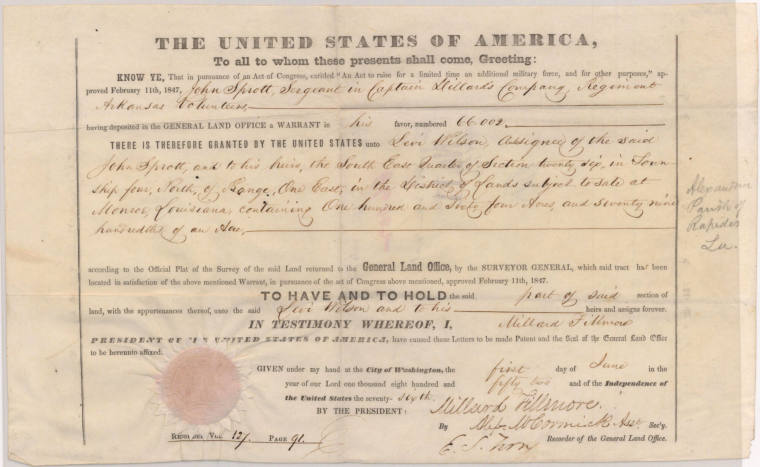 THE UNITED STATES OF AMERICA,
To all to whom these presents shall come, Greeting:
KNOW YE, That in pursuance of an Act of Congress, entitled "An Act to raise for a limited time an additional military force, and for other purposes," ap-
proved February 11th, 1847, John Sprott, Sergeant in Captain Dillard's Company, Regiment
Arkansas Volunteers,
having deposited in the GENERAL LAND OFFICE a WARRANT in his favor, numbered 66.002.
THERE IS THEREFORE GRANTED BY THE UNITED STATES unto Levi Wilson, Assignee of the said
John Sprott, and to his heirs, the South East Quarter of Section twenty six, in Town-
ship four, North, of Range, One East, in the District of Lands subject to sale at
Monroe, Louisiana, containing One hundred and Sixty four Acres, and seventy nine
hundredths of an Acre,
Alexandria
Parish of
Rapides
La.
according to the Official Plat of the Survey of the said Land returned to the General Land Office, by the SURVEYOR GENERAL, which said tract has been
located in satisfaction of the above mentioned Warrant, in pursuance of the act of Congress above mentioned, approved February 11th, 1847.
TO HAVE AND TO HOLD the said part of said section of
land, with the appertenances thereof, unto the said Levi Wilson and to his heirs and assigns forever.
IN TESTIMONY WHEREOF, I, Millard Fillmore
PRESIDENT OF THE UNITED STATES OF AMERICA, have caused these Letters to be made Patent and the Seal of the General Land Office
to be hereunto affixed.
GIVEN under my hand at the City of Washington, the first day of June in the
year of our Lord one thousand eight hundred and fifty two and of the Independence of
the United States the seventy-sixth.
BY THE PRESIDENT: Millard Fillmore.
By Alex. McCormick Asst Sec'y.
E. S. Terry Recorder of the General Land Office.
RECORDED, VOL. 127. PAGE 91.